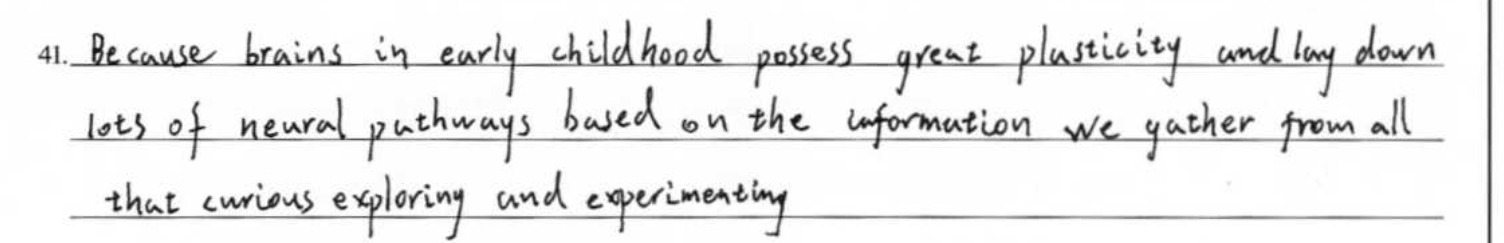 41. Because brains in early childhood possess great plasticity and lay down
lots of neural pathways based on the information we gather from all
that curious exploring and experimenting